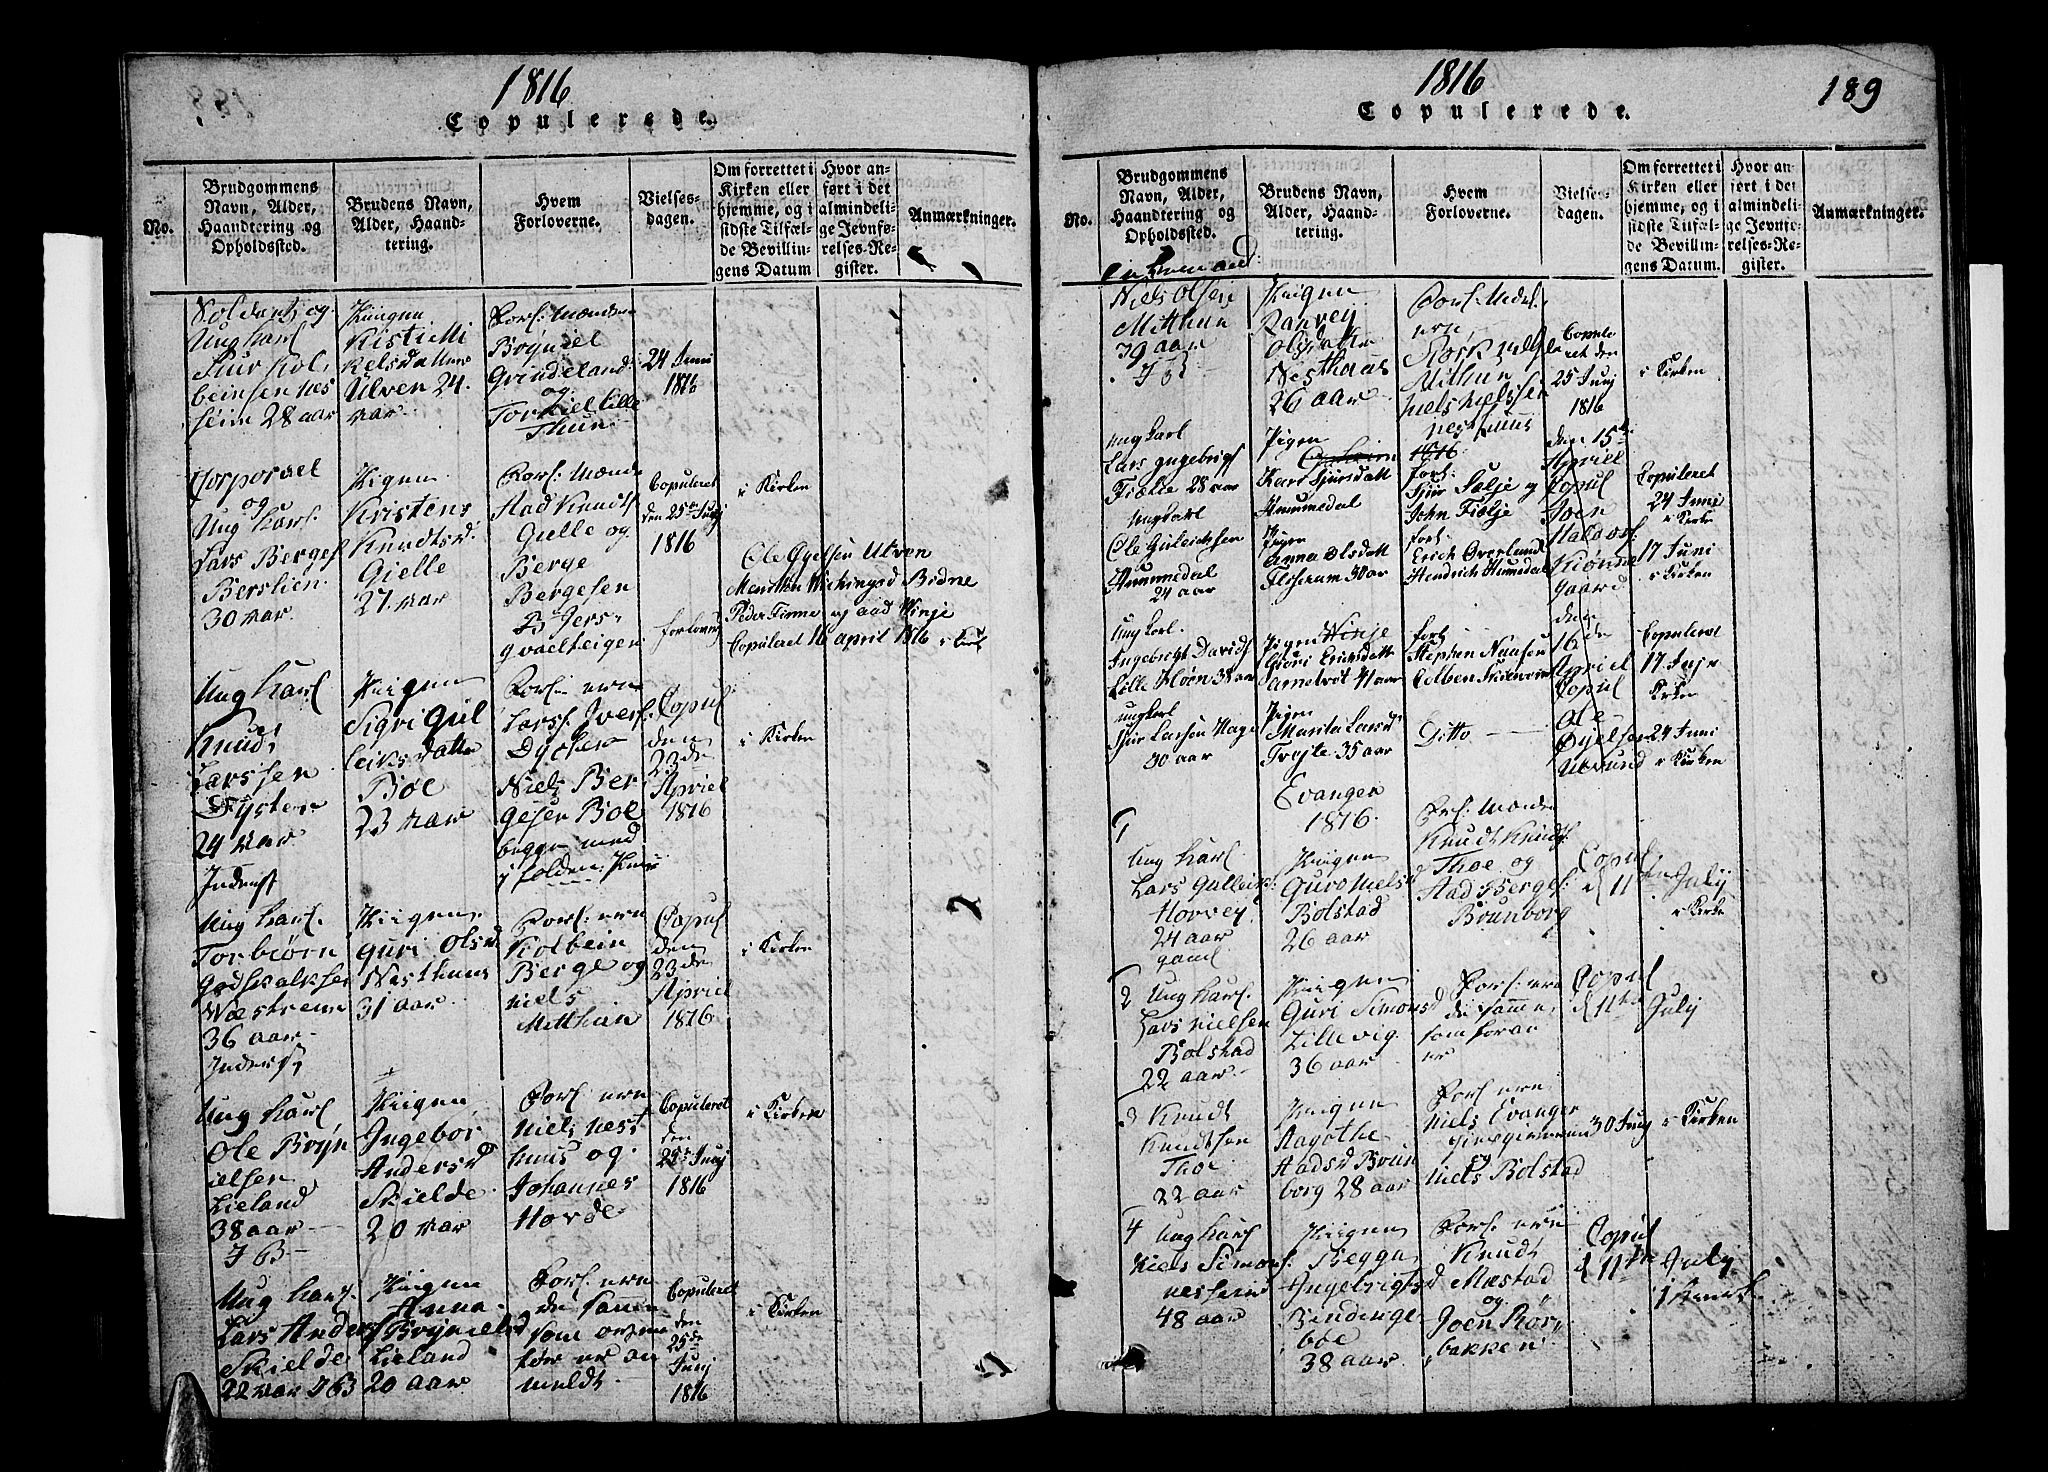 1816
Copulerede.
No.
Brudgommens
Navn, Alder,
Haandtering og
Opholdssted.
Brudens Navn,
Alder, Haand-
tering.
Hvem
Forloverne.
Vielses-
dagen.
Om forrettet i
Kirken eller
hjemme, og i
sidste Tilfæl-
de Bevillin-
gens Datum
Hvor an-
ført i det
almindeli-
ge Jevnfø-
relses-Re-
gister.
Anmærkninger.
Soldat og
Ung Karl
28 aar
Piigen
Ulven 24
aar
Forl: Mænden
Brÿniel
Grindeland
og
Torkiel Lille
Thun
24 Juni
1816
Corporael
og
Ung Karl
Lars Berges
Berslien
30 aar
Piigen
Kristens
Knudtsd:
Gielle
27 aar
Forl: Mænde
Aad Knudts
Gielle og
Berge
Bergesen
Copuleret
den 25de Junj
1816
i Kirken
forlovere
Ole Øyelsen Ukven
Peder Finne og aad Winje
Copuleret 16 april 1816 i Kirk
Ung Karl
Knud
Larssen
Dÿster
24 aar
Indenst
Piigen
Sigri Gul
leiksdatter
Bøe
23 aar
Forl: ere
Lars Iverss.
Niels Ber
gesen Bøe
begge med
Copul
den
23de
Apriel
1816
i Kirken
Ung Karl
Torbiørn
Godskalksen
36 aar
Inderst
Piigen
Guri Olsd
Nesthuus
31 aar
Forl: ere
Kolbein
Berge og
Niels
Mitthun
Copul
den
23de
Apriel
1816
i Kirken
Ung Karl
Ole Brÿn
ielsen
Lieland
38 aar
J B
Piigen
Ingebor
Andersd
Skielde
20 aar
Forl: ere
Niels Nest
huus og
Johannes
Horde
Copuleret
den
25de Junj
1816
i Kirken
Ung Karl
Lars Anders
Skielde
22 aar J B
Piigen
Anna
Brÿnielsd
Lieland
20 aar
Forl: ere
de samme
som oven
for er an
meldt
Copuleret
den
25de
Junj
1816
i Kirken
1816
189
Copulerede.
No.
Brudgommens
Navn, Alder,
Haandtering og
Opholdssted.
Brudens Navn,
Alder, Haand-
tering.
Hvem
Forloverne.
Vielses-
dagen.
Om forrettet i
Kirken eller
hjemme, og i
sidste Tilfæl-
de Bevillin-
gens Datum.
Hvor an-
ført i det
almindeli-
ge Jevnfø-
relses-Re-
gister.
Anmærkninger.
Niels Olsen
Mitthun
39 aar
Piigen
Ranvey
Olsdatter
Nesthuus
26 aar
Mitthun
Niels Nielssen
Nesthuus
Copule
ret den
25 Junj
1816
i Kirken
Ung karl
Lars Ingebrigts
Fiælie 28 aar
Pigen
Kari Sjursdatt
Hummedal
1816
forl:
Sjur Selje og
John Fiælje
den 15de
Apriel
Copul
Joen
Copuleret
24 Junij
i Kirke
Ung karl
Ole Guleichsen
Hummedal
24 aar
Pigen
Anna Olsdatt
Flisseram 30 aar
forl:
Erich Overland
Hendrich Humedal
gaard
17 Juni
i Kirken
Ung karl
Ingebrigt Davids
Lille Møen 38 aar
Pigen Winje
Giøri Erichsdatt
41 aar
forl:
Stephen Naasen
den
16de
Apriel
Copul
Ole
Øyelsen
Copuleret
17 Junj
Kirken
ung karl
Sjur Larsen Hage
30 aar
Pigen
Marita Larsd
Tvejte 35 aar
Ditto
24 Juni
i Kirken
Evanger
1816.
1
Ung Karl
Lars Gulleiks:
Horvey
24 aar
gaml
Piigen
Guro Nielsd
Bolstad
26 aar
Forl: Mænde
Knudt Knudts
Thoe og
Aad Berges:
Brunborg
Copul
d 11te
July
i Kirke
2 Ung Karl
Lars Nielsen
Bolstad
22 aar
Piigen
Guri Simonsd
Lillevig
36 aar
Forl: ere
de samme
som foran
er
Copul
d 11te
July
3 Knudt
Knudtsen
Thoe
22 aar
Piigen
Aagothe
Aadsd Brun
borg 28 aar
Forl: ere
Niels Evanger
og
Niels Bolstad
30 Junj
i Kirken
4 Ung Karl
Niels Simons:
Nesheim
48 aar
Piigen
Begga
Ingebrigtsd
Bindinge
bøe
38 aar
Forl: ere
Knud
Mæstad
og
Joen Rør
bakken
Copul
d 11te
July
i Kirk